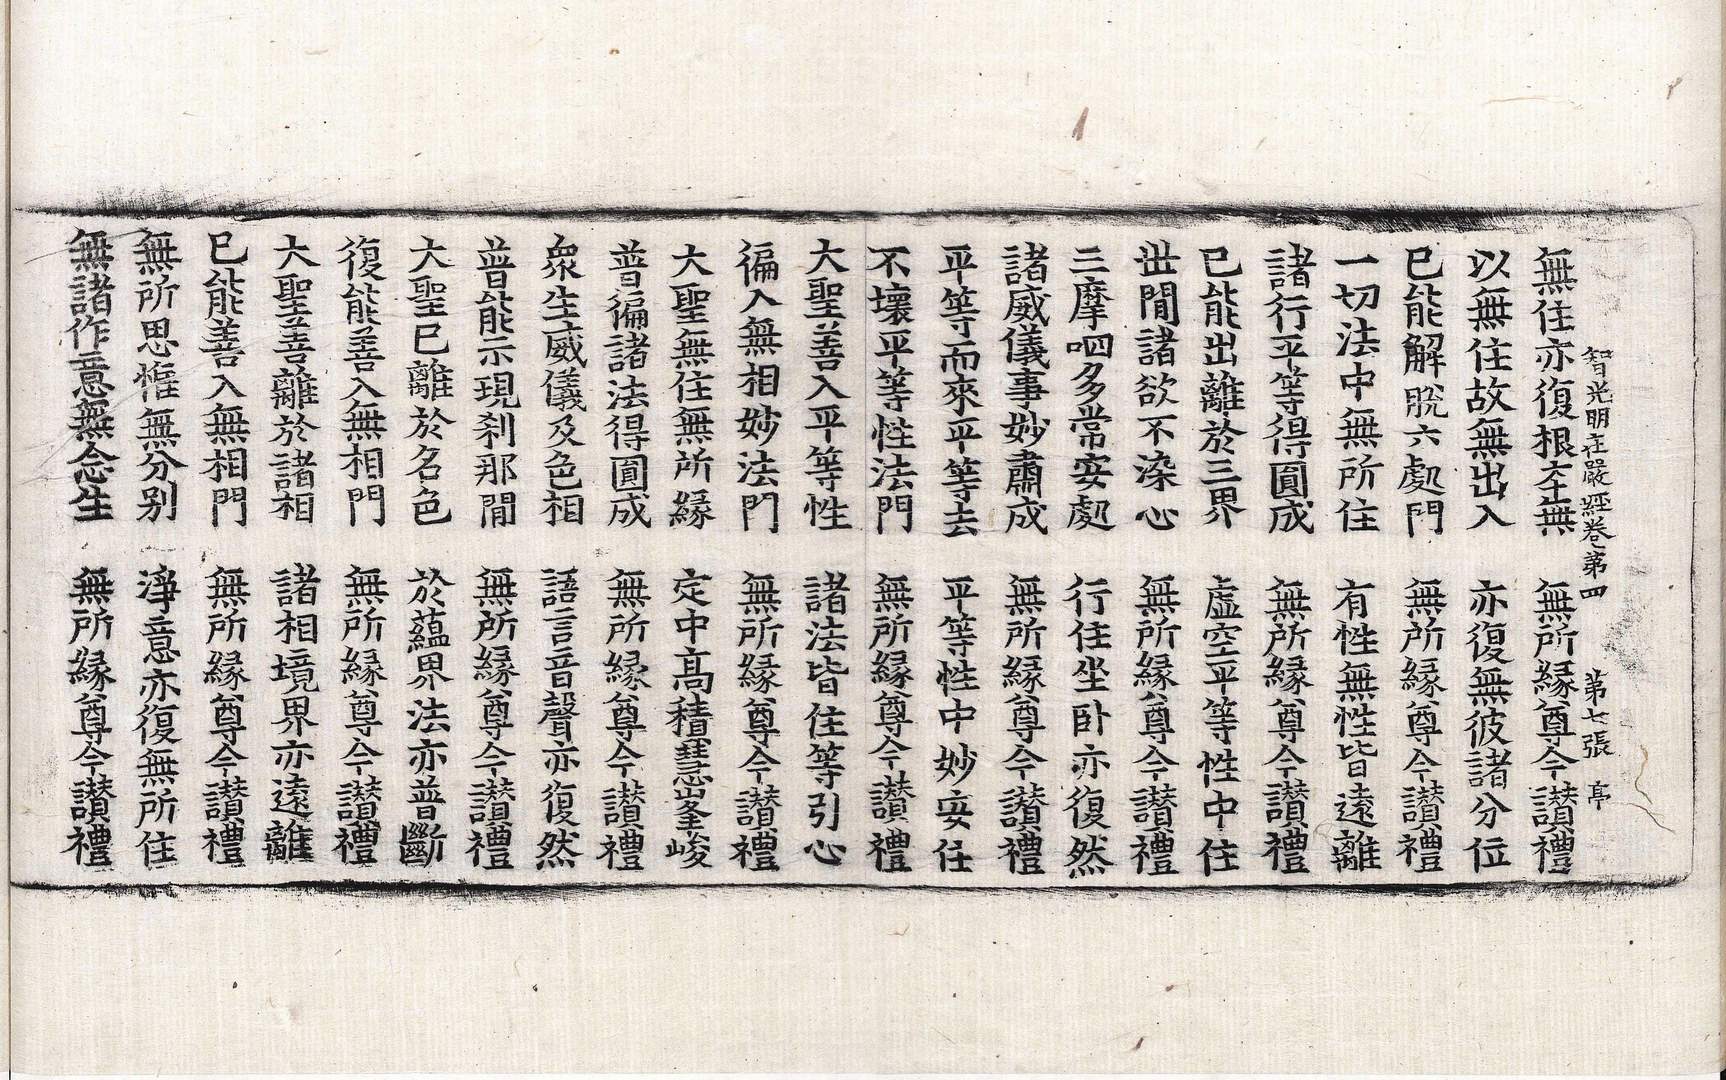 智光明莊嚴經卷第四　第七張　亭
無住亦復根本無　無所緣尊今讃禮
以無住故無出入　亦復無彼諸分位
已能解脫六處門　無所緣尊今讃禮
一切法中無所住　有性無性皆遠離
諸行平等得圓成　無所緣尊今讃禮
已能出離於三界　虛空平等性中住
世間諸欲不染心　無所緣尊今讃禮
三摩呬多常安處　行住坐卧亦復然
諸威儀事妙肅成　無所緣尊今讃禮
平等而來平等去　平等性中妙安住
不壞平等性法門　無所緣尊今讃禮
大聖善入平等性　諸法皆住等引心
徧入無相妙法門　無所緣尊今讃禮
大聖無住無所緣　定中高積慧峯峻
普徧諸法得圓成　無所緣尊今讃禮
衆生威儀及色相　語言音聲亦復然
普能示現刹那間　無所緣尊今讃禮
大聖已離於名色　於蘊界法亦普斷
復能善入無相門　無所緣尊今讃禮
大聖善離於諸相　諸相境界亦遠離
已能善入無相門　無所緣尊今讃禮
無所思惟無分别　淨意亦復無所住
無諸作意無念生　無所緣尊今讃禮